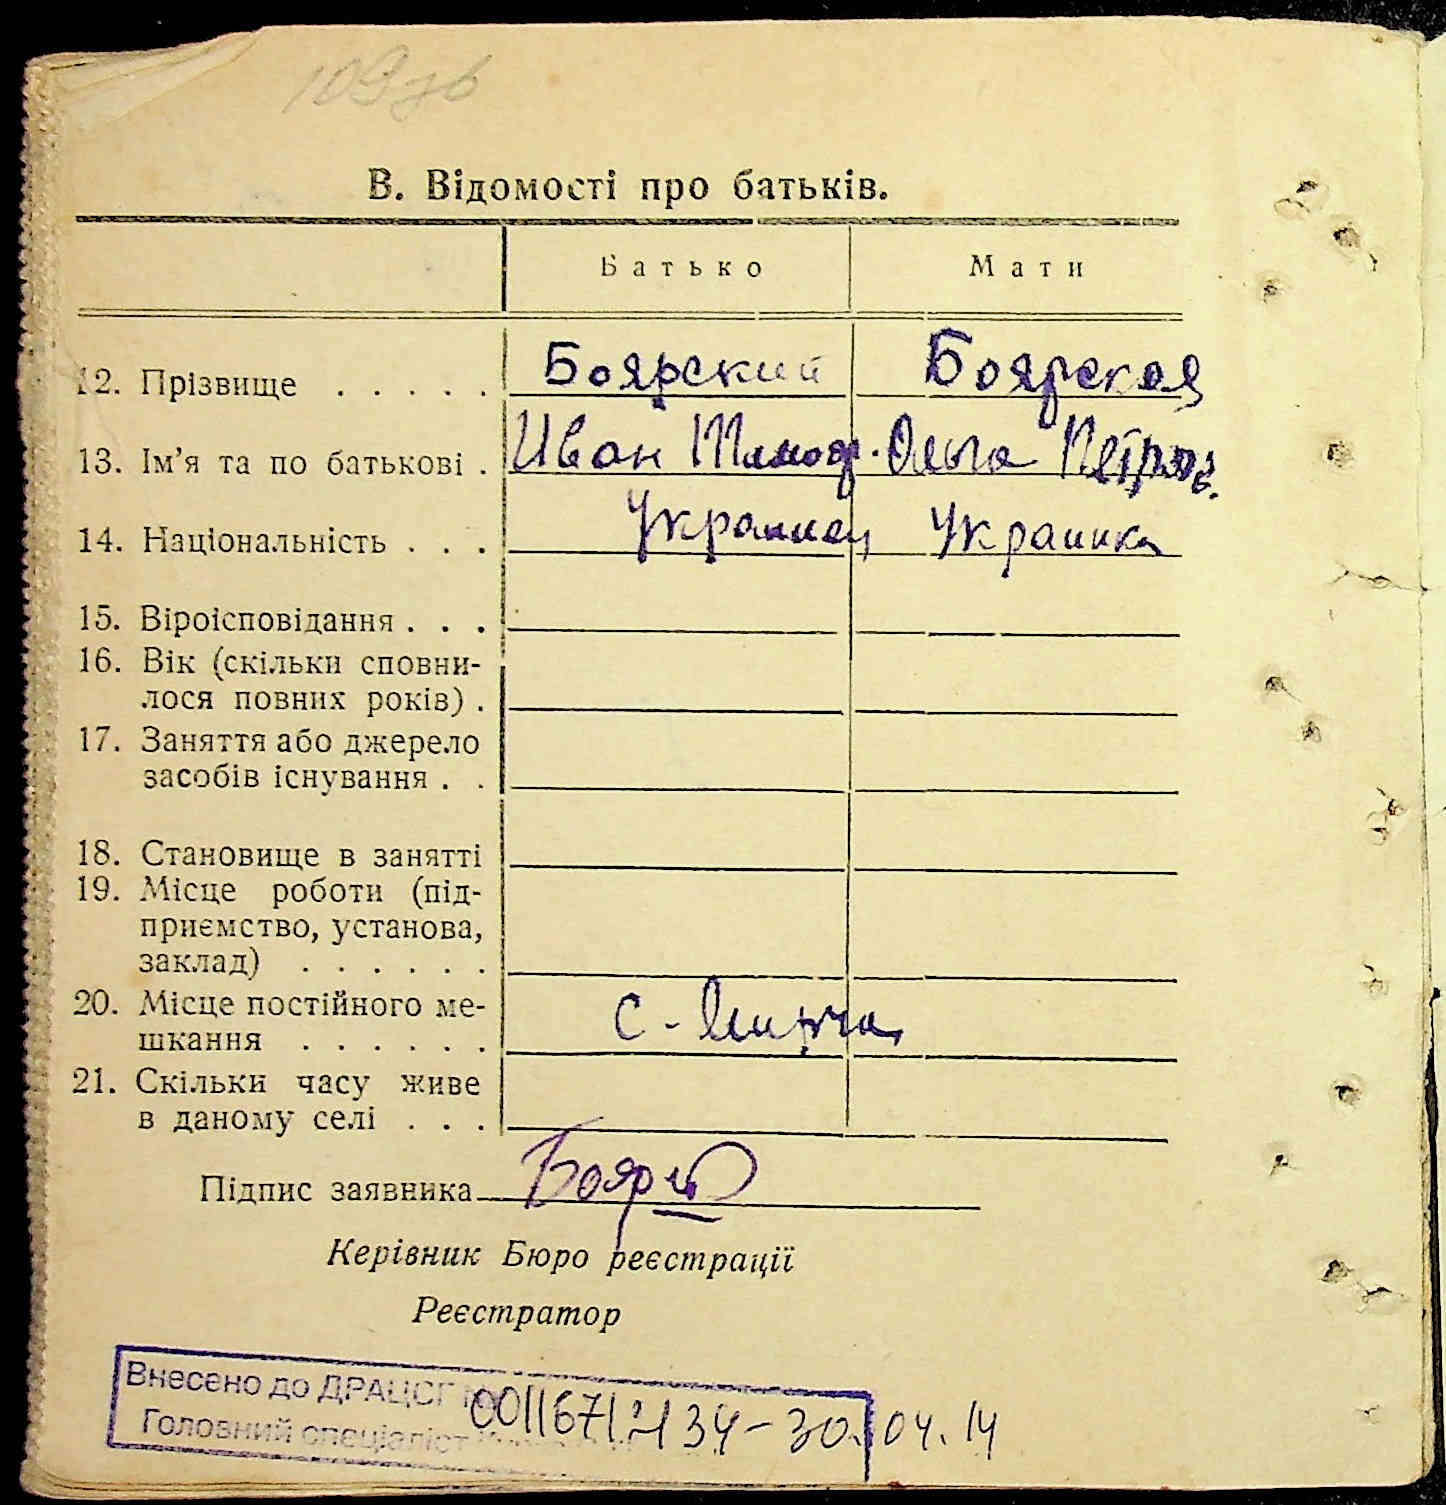 109зв
В. Відомості про батьків.
Батько Мати
12. Прізвище . . . . . Боярский Боярская
13. Ім'я та по батькові . Иван Тимоф. Ольга Петров.
14. Національність . . . Украинец Украинка
15. Віроісповідання . . .
16. Вік (скільки сповни-
лося повних років) .
17. Заняття або джерело
засобів існування . .
18. Становище в занятті
19. Місце роботи (під-
приємство, установа,
заклад) . . . . . .
20. Місце постійного ме-
шкання . . . . . . С-
21. Скільки часу живе
в даному селі . . .
Підпис заявника
Керівник Бюро реєстрації
Реєстратор
Внесено до ДРАЦСГ
Головний спеціаліст 30.04.14